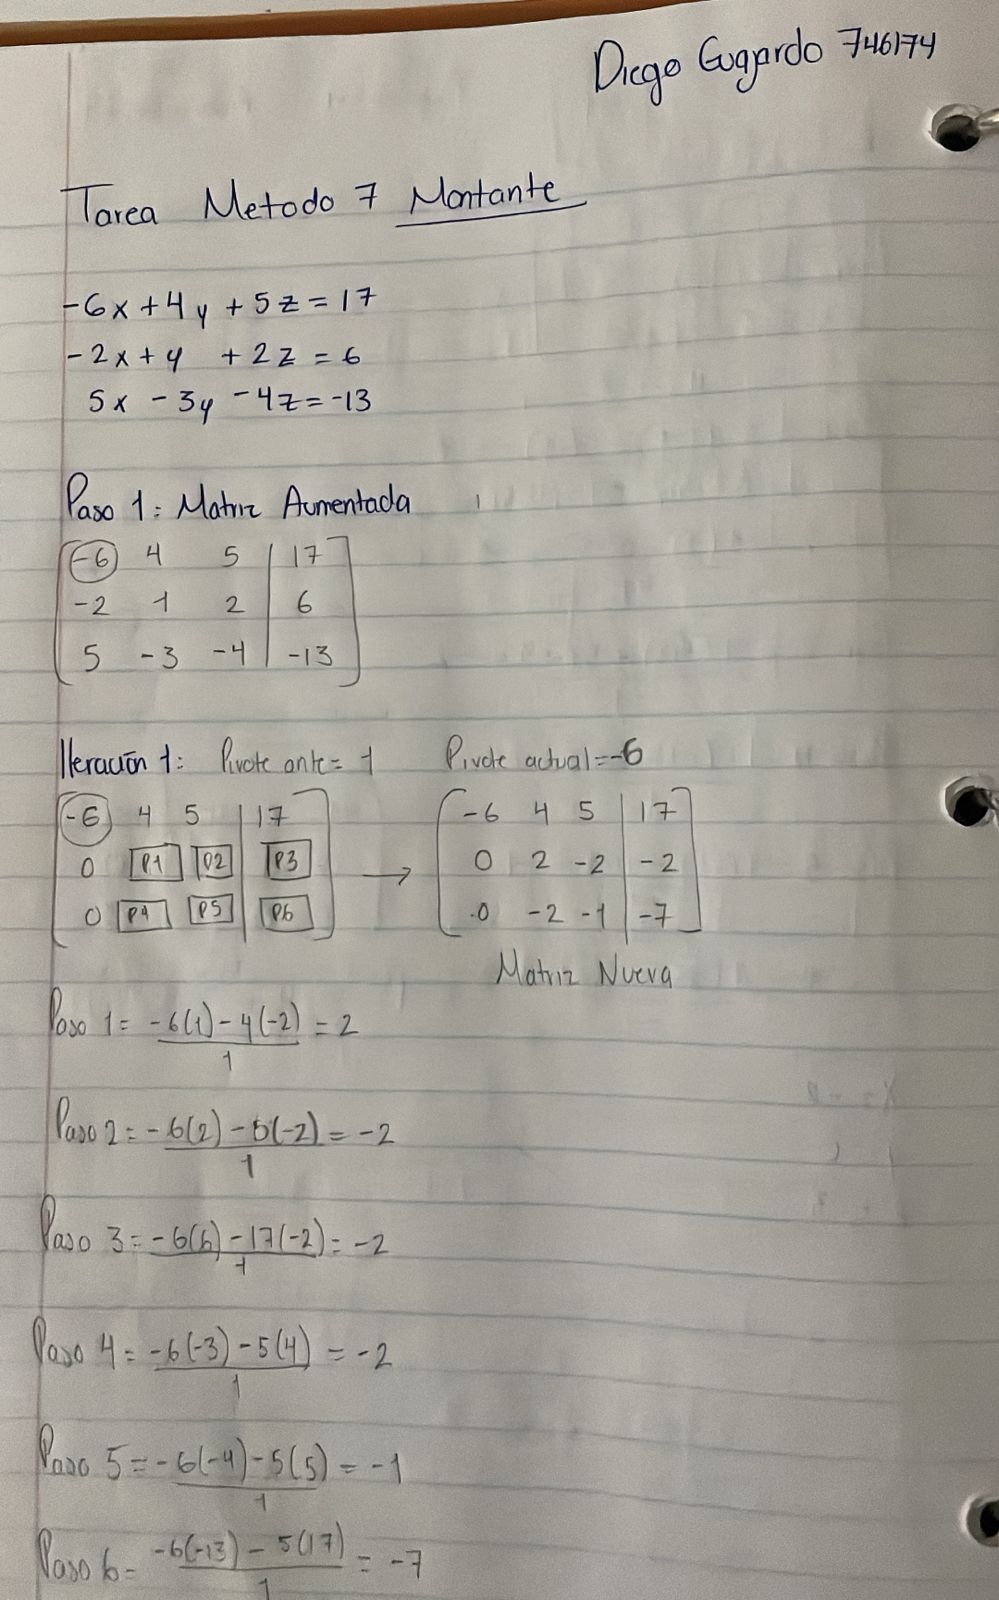 Diego Gugardo 746174
Tarea Metodo 7 Montante
-6x+4y+5z=17
-2x+y +2z=6
5x-3y-4z=-13
Paso 1: Matriz Aumentada
-6 4 5 | 17
-2 1 2 | 6
5 -3 -4 | -13
Iteración 1: Pivote ante= 1 Pivote actual=-6
-6 4 5 | 17 -6 4 5 | 17
0 P1 P2 | P3 → 0 2 -2 | -2
0 P4 P5 | P6 0 -2 -1 | -7
Matriz Nueva
Paso 1= -6(1)-4(-2) = 2
1
Paso 2= -6(2)-5(-2) = -2
1
Paso 3= -6(6)-17(-2) = -2
1
Paso 4= -6(-3)-5(4) = -2
1
Paso 5= -6(-4)-5(5) = -1
1
Paso 6= -6(-13)-5(17) = -7
1